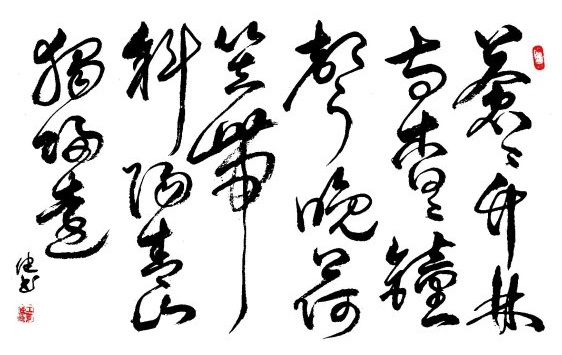 蒼〻竹林
寺杳〻鐘
聲晚荷
笠帶
斜陽青山
獨歸遠